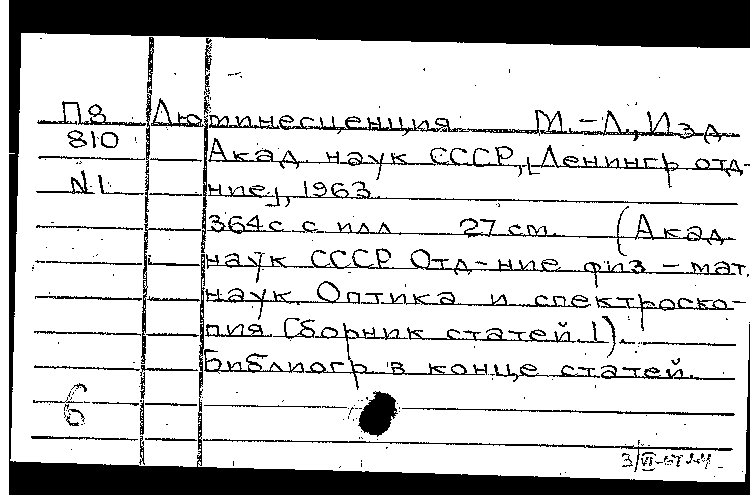 П8 Люминесценция М.-Л., Изд
810 Акад наук СССР, [Ленингр отд-
N1 ние], 1963
364с с илл 27 см. (Акад
наук СССР Отд-ние физ-мат.
наук. Оптика и спектроско-
пия. Сборник статей. 1).
Библиогр в конце статей.
6